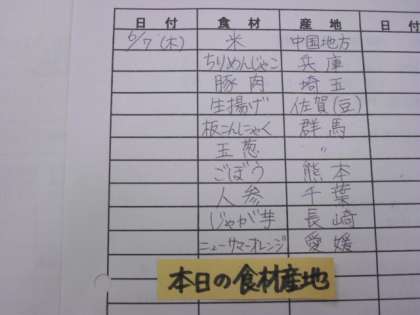 日付 食材 産地 日付
6/7(木) 米 中国地方
ちりめんじゃこ 兵庫
豚肉 埼玉
生揚げ 佐賀(豆)
板こんにゃく 群馬
玉葱 〃
ごぼう 熊本
人参 千葉
じゃが芋 長崎
ニューサマーオレンジ 愛媛
本日の食材産地